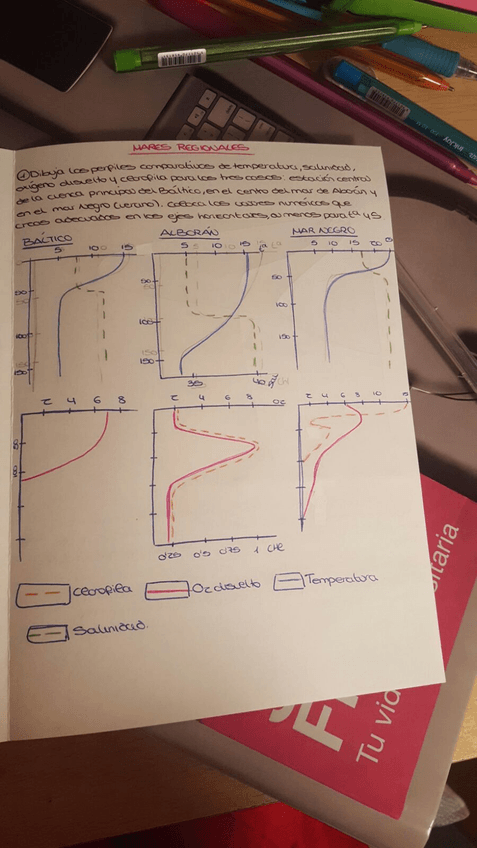 MARES REGIONALES
① Dibuja los perfiles comparativos de temperatura, salinidad,
oxígeno disuelto y clorofila para los tres casos: estación central
de la cuenca principal del Báltico, en el centro del mar de Alborán y
en el mar Negro (verano). Coloca los valores numéricos que
creas adecuados en los ejes horizontales, al menos para tª y S
BÁLTICO ALBORÁN MAR NEGRO
5 10 15 5 10 15 tª 5 10 15 20
50 50 50
100 100 100
150 150 150
38 40 Sal
2 4 6 8 2 4 6 8 O2 2 4 6 8 10
50
100
0'25 0'5 0'75 1 CHL
Clorofila O2 disuelto Temperatura
Salinidad.
sitaria
Tu vid